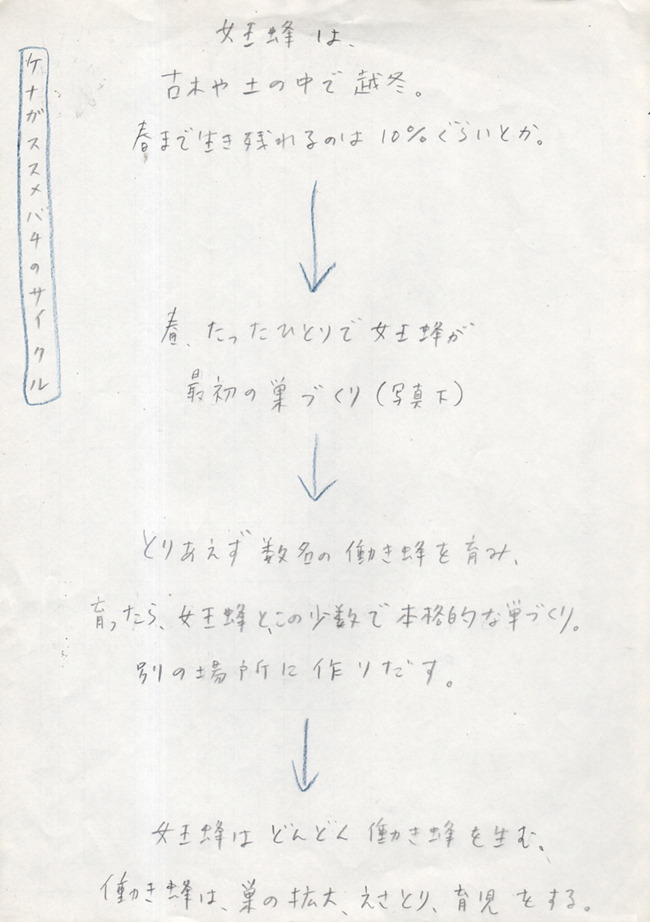 ケナガスズメバチのサイクル
女王蜂は、
古木や土の中で越冬。
春まで生き残れるのは10%ぐらいとか。
春、たったひとりで女王蜂が
最初の巣づくり(写真下)
とりあえず数名の働き蜂を育み、
育ったら、女王蜂と、この少数で本格的な巣づくり。
別の場所に作りだす。
女王蜂はどんどん働き蜂を生む、
働き蜂は、巣の拡大、えさとり、育児をする。